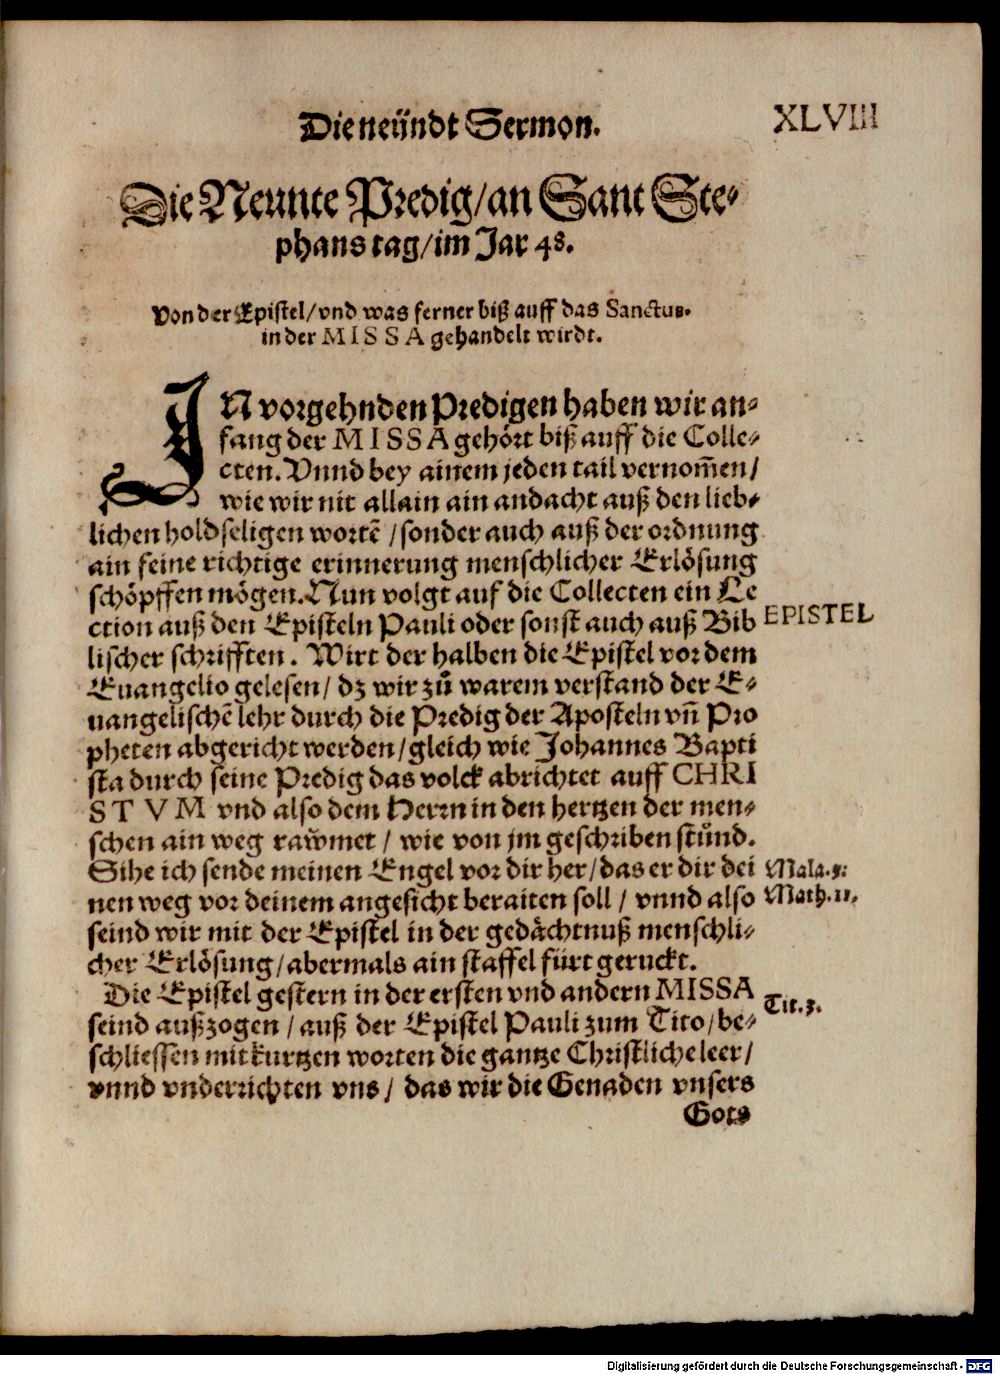 Die neündt Sermon.
XLVIII
Die Neunte Predig/an Sant Ste-
phans tag/im Jar 48.
Von der Epistel/vnd was ferner biß auff das Sanctus.
in der MISSA gehandelt wirdt.
IN vorgehnden Predigen haben wir an-
fang der MISSA gehört biß auff die Colle-
cten. Vnnd bey ainem jeden tail vernom̃en/
wie wir nit allain ain andacht auß den lieb-
lichen holdseligen wortẽ/sonder auch auß der ordnung
ain feine richtige erinnerung menschlicher Erlösung
schöpffen mögen. Nun volgt auf die Collecten ein Le
ction auß den Episteln Pauli oder sonst auch auß Bib
EPISTEL
lischer schrifften. Wirt der halben die Epistel vor dem
Euangelio gelesen/dz wir zů warem verstand der E-
uangelischẽ lehr durch die Predig der Aposteln vñ Pro
pheten abgericht werden/gleich wie Johannes Bapti
sta durch seine Predig das volck abrichtet auff CHRI
STVM vnd also dem Herrn in den hertzen der men-
schen ain weg raẘmet/wie von jm geschriben stůnd.
Sihe ich sende meinen Engel vor dir her/das er dir dei
Mala. 3.
nen weg vor deinem angesicht beraiten soll/vnnd also
Math. 11.
seind wir mit der Epistel in der gedächtnuß menschli-
cher Erlösung/abermals ain staffel fürt geruckt.
Die Epistel gestern in der ersten vnd andern MISSA
Tit. 3.
seind außzogen/auß der Epistel Pauli zum Tito/be-
schliessen mit kurtzen worten die gantze Christliche leer/
vnnd vnderrichten vns/das wir die Genaden vnsers
Gots
Digitalisierung gefördert durch die Deutsche Forschungsgemeinschaft - DFG